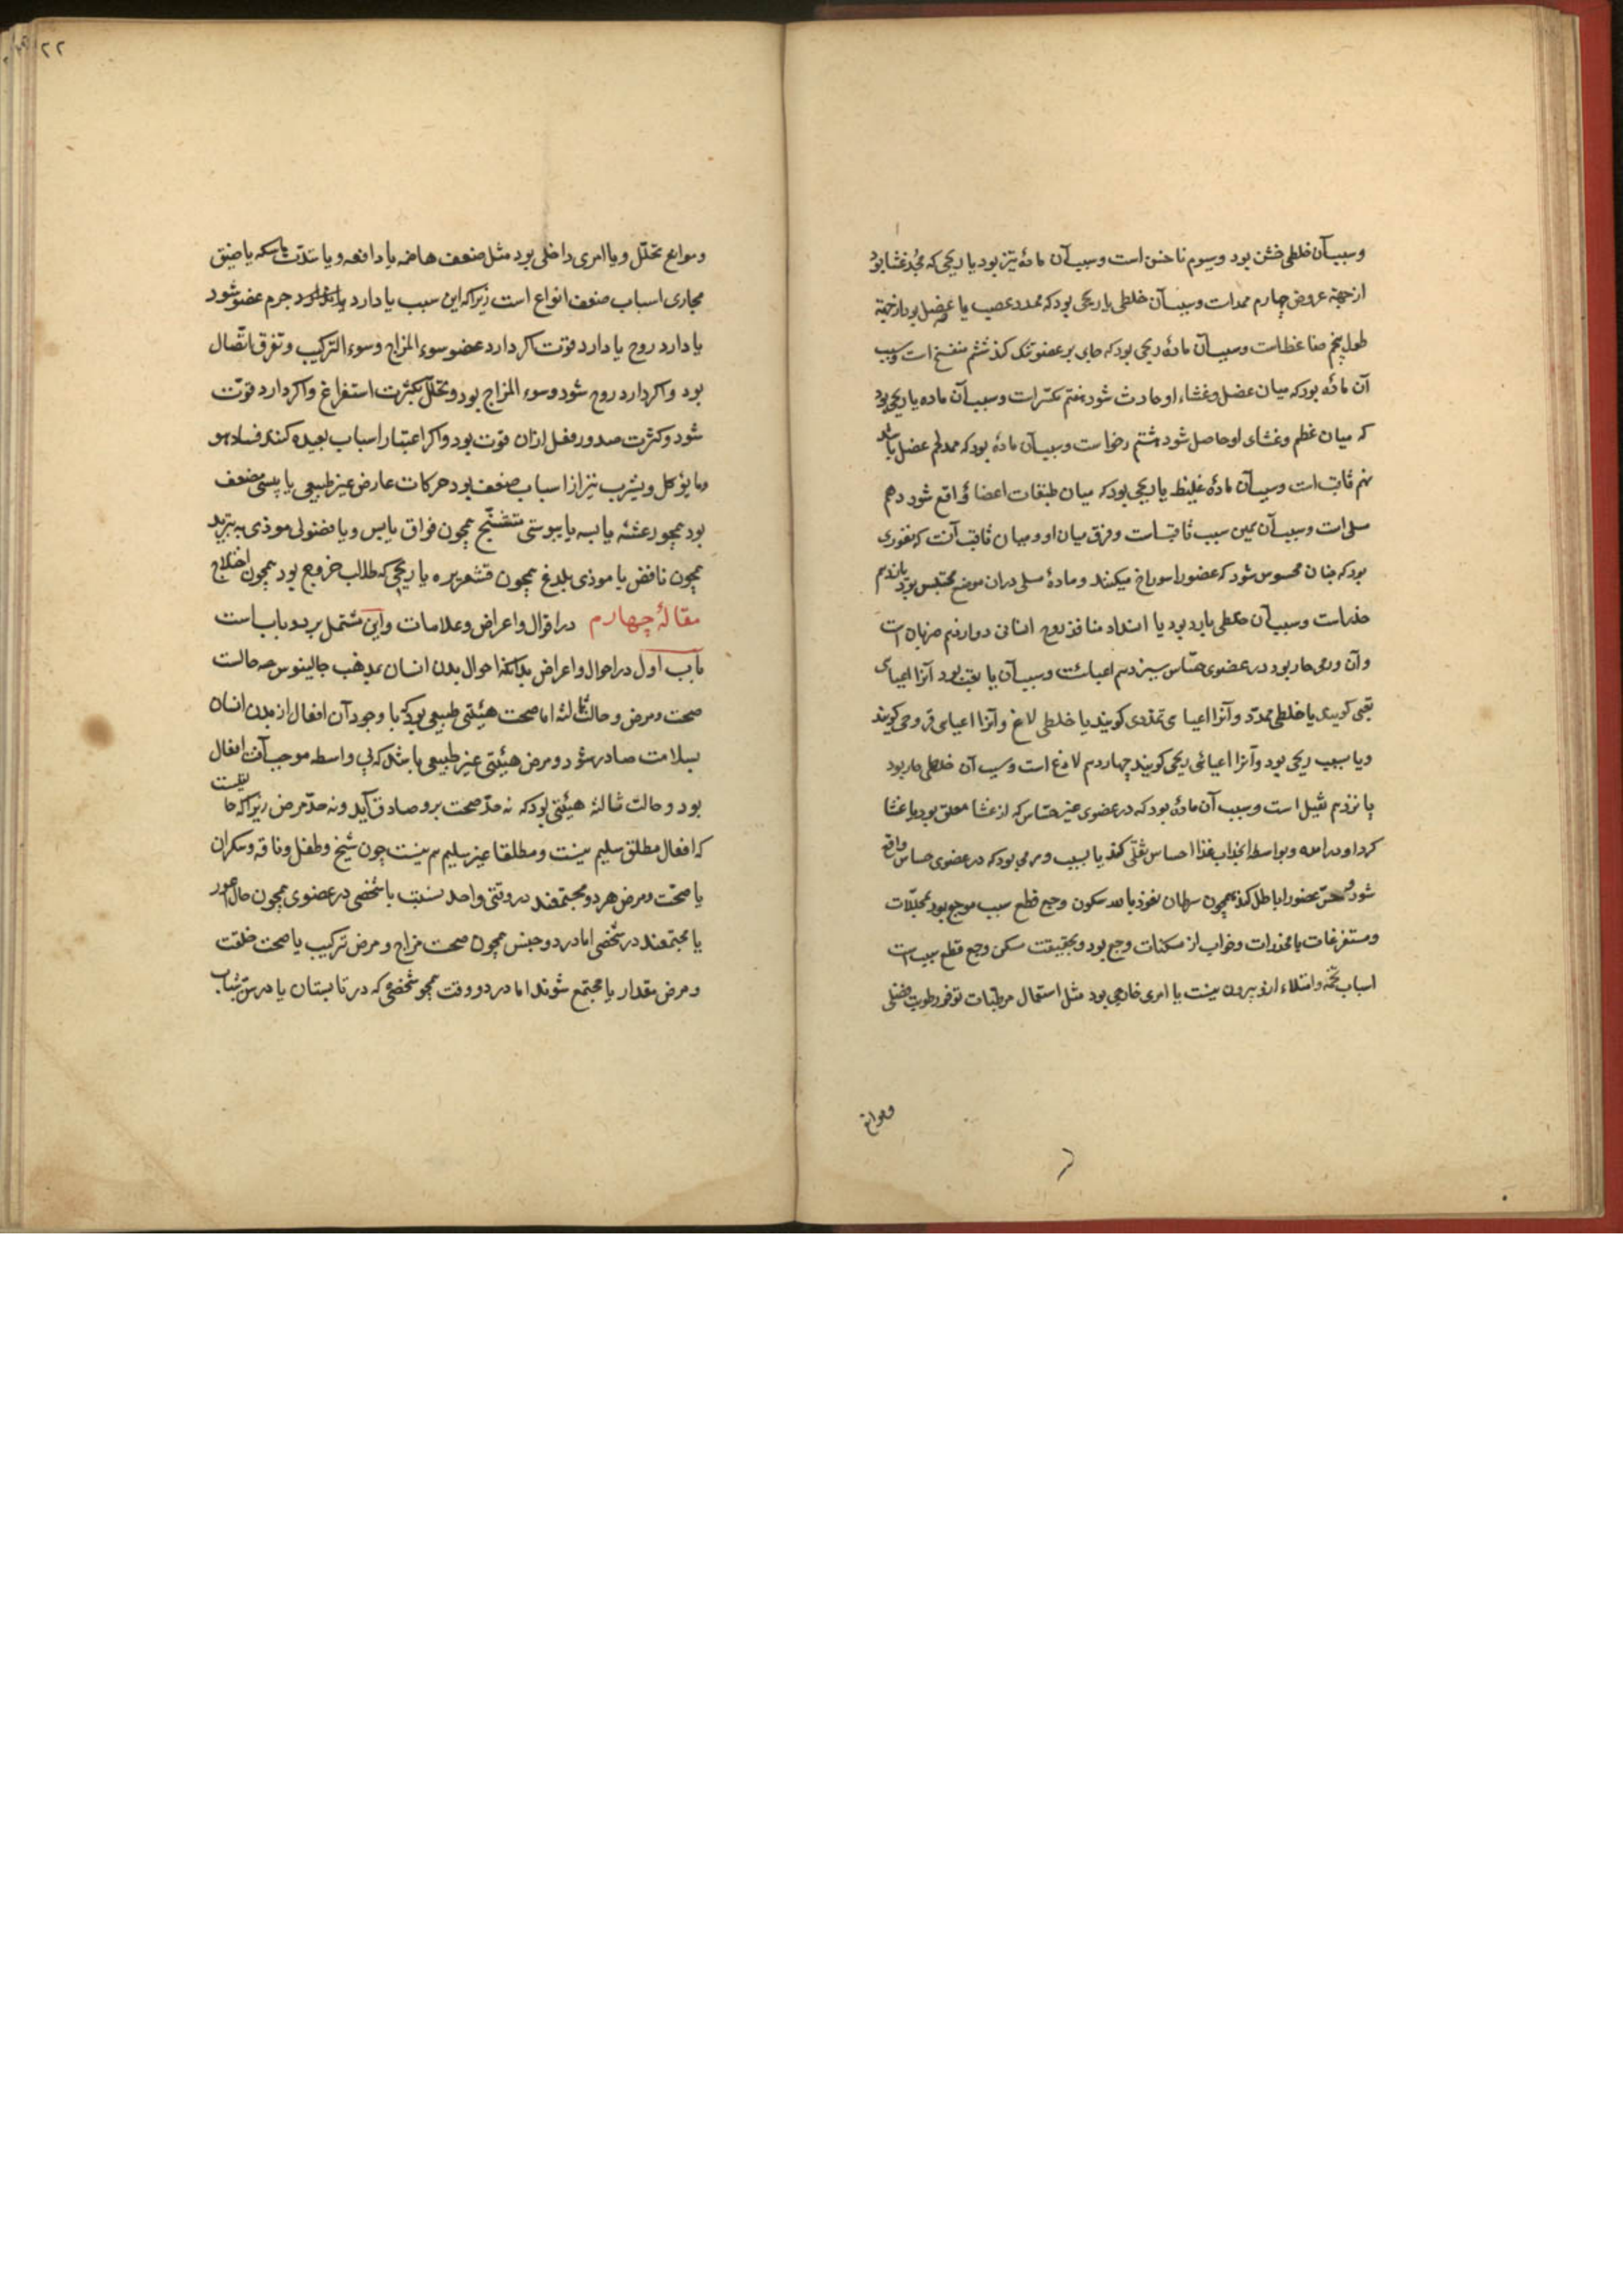 و سبب آن خلطی خشن بود و سیوم ناخس است و سبب آن مادهٔ تیز بود یا ریحی که ممدد غشا بود
از جهة عروض چهارم ممددات و سبب آن خلطی یا ریحی بود که ممدد عصب یا عضل بود از جهة
طول پنجم ضاغط است و سبب آن مادهٔ ریحی بود که جای بر عضو تنک کند ششم منفسخ است و سبب
آن مادهٔ بود که میان عضل و غشاء او حادث شود هفتم مکسر است و سبب آن ماده یا ریحی بود
که میان عظم و غشای او حاصل شود هشتم رخو است و سبب آن مادهٔ بود که ممدد لحم عضل باشد
نهم ثاقب است و سبب آن مادهٔ غلیظ یا ریحی بود که میان طبقات اعضا واقع شود دهم
مسلی است و سبب آن همین سبب ثاقب است و فرق میان او و میان ثاقب آنست که نفوذی
بود که چنان محسوس شود که عضو را سوراخ میکنند و مادهٔ مسلی در آن موضع محتبس بود یازدهم
خدر است و سبب آن خلطی بارد بود یا انسداد منافذ روح انسانی دوازدهم ضربان است
و آن ورمی حار بود در عضوی حساس سیزدهم اعیائیست و سبب آن یا تعب بود آنرا اعیای
تعبی کویند یا خلطی ممدد و آنرا اعیای تمددی کویند یا خلطی لاذغ و آنرا اعیای قروحی کویند
و یا سبب ریحی بود و آنرا اعیائی ریحی کویند چهاردهم لاذغ است و سبب آن خلطی حار بود
پانزدهم ثقیل است و سبب آن مادهٔ بود که در عضوی غیر حساس که از غشا معلق بود یا غشا
کرد او در آمده و بواسطه انجذاب غذا احساس ثقلی کند یا بسبب ورمی بود که در عضوی حساس واقع
شود و حس عضو را باطل کند همچون سرطان نعوذ بالله سکون وجع قطع سبب موجع بود بمحللات
و مستفرغات یا مخدرات و خواب از مسکنات وجع بود و بحقیقت مسکن وجع قطع سبب است
اسباب تخمه و امتلاء ازو بیرون نیست یا امری خارجی بود مثل استعمال مرطبات توفر رطوبت فضلی
وموانع
۲۲
و موانع تحلل و یا امری داخلی بود مثل ضعف هاضمه یا دافعه و یا شدت ماسکه یا ضیق
مجاری اسباب ضعف انواع است زیرا که این سبب یا دارد جرم عضو شود
یا دارد روح یا دارد قوت اکر دارد عضو سوء المزاج و سوء الترکیب و تفرق اتصال
بود و اکر دارد روح شود و سوء المزاج بود و تحلل بکثرت استفراغ و اکر دارد قوت
شود و کثرت صدور فعل ازان قوت بود و اکر اعتبار اسباب بعیده کنند فساد هو
و ما یؤکل و یشرب نیز از اسباب ضعف بود حرکات عارض غیر طبیعی یا پستی مضعف
بود همچو رعشه یابسه یا یبوستی متشنج همچون فواق یابس و یا فضولی موذی به تبرید
همچون نافض یا موذی بلدغ همچون قشعریره یا ریحی که طالب خروج بود همچون اختلاج
مقالهٔ چهارم در اقوال و اعراض و علامات و این مشتمل بر دو باب است
باب اول در احوال و اعراض بدانکه احوال بدن انسان بمذهب جالینوس سه حالت
صحت و مرض و حالت ثالثه اما صحت هیئتی طبیعی بود که با وجود آن افعال از بدن انسان
بسلامت صادر شود و مرض هیئتی غیر طبیعی باشد که بی واسطه موجب آفت افعال
بود و حالت ثالثه هیئتی بود که نه حد صحت برو صادق آید و نه حد مرض زیرا که حالتیست
که افعال مطلق سلیم نیست و مطلقا غیر سلیم هم نیست چون شیخ و طفل و ناقه و سکران
یا صحت و مرض هر دو مجتمعند در وقتی واحد نسبت با شخصی در عضوی همچون حال اعور
یا مجتمعند در شخصی اما در دو جنس همچون صحت مزاج و مرض ترکیب یا صحت خلقت
و مرض مقدار یا مجتمع شوند اما در دو وقت همچو شخصی که در تابستان یا در سن شباب